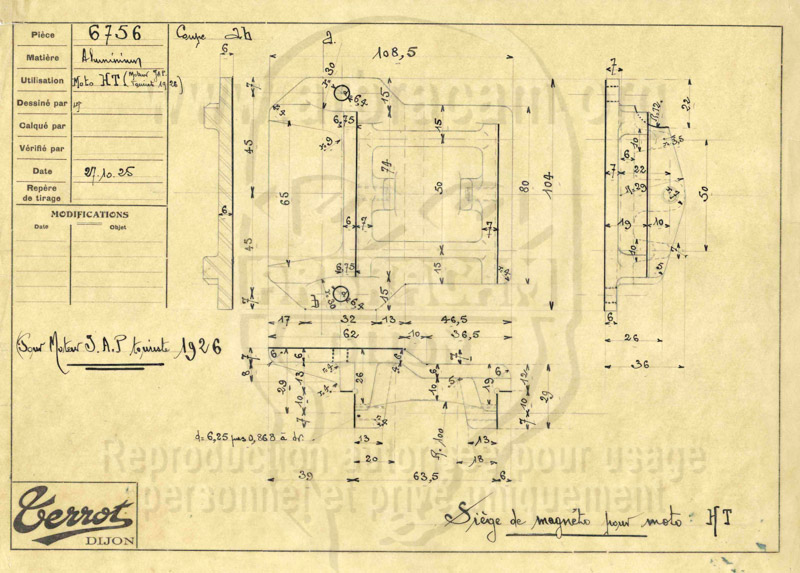 Pièce 6756
Matière Aluminium
Utilisation Moto HT (Moteur J.A.P. touriste 1926)
Dessiné par
Calqué par
Vérifié par
Date 27.10.25
Repère
de tirage
MODIFICATIONS
Date Objet
Coupe ab
a
108,5
6 7 45 6 45 7
30 6,4 15 6,75 9 15
65 74 50 80 104
6 7 7
6,75 15 15
b 6
17 32 13 46,5
62 10 36,5
7 22 R.12 10 3,5
6 7 22 9 50
19 10 10 7 5
6
26
36
(Pour Moteur J.A.P touriste 1926
7 8 6 6 6 7 6
29 13 10 7 26 10 5 19 12 10 7 29
d = 6,25 pas 0,868 à dr.
13 R. 100 13
20 18
39 63,5 6
www.labracam.org
Reproduction autorisée pour usage
personnel et privé uniquement
Terrot
DIJON
Siège de magnéto pour moto HT